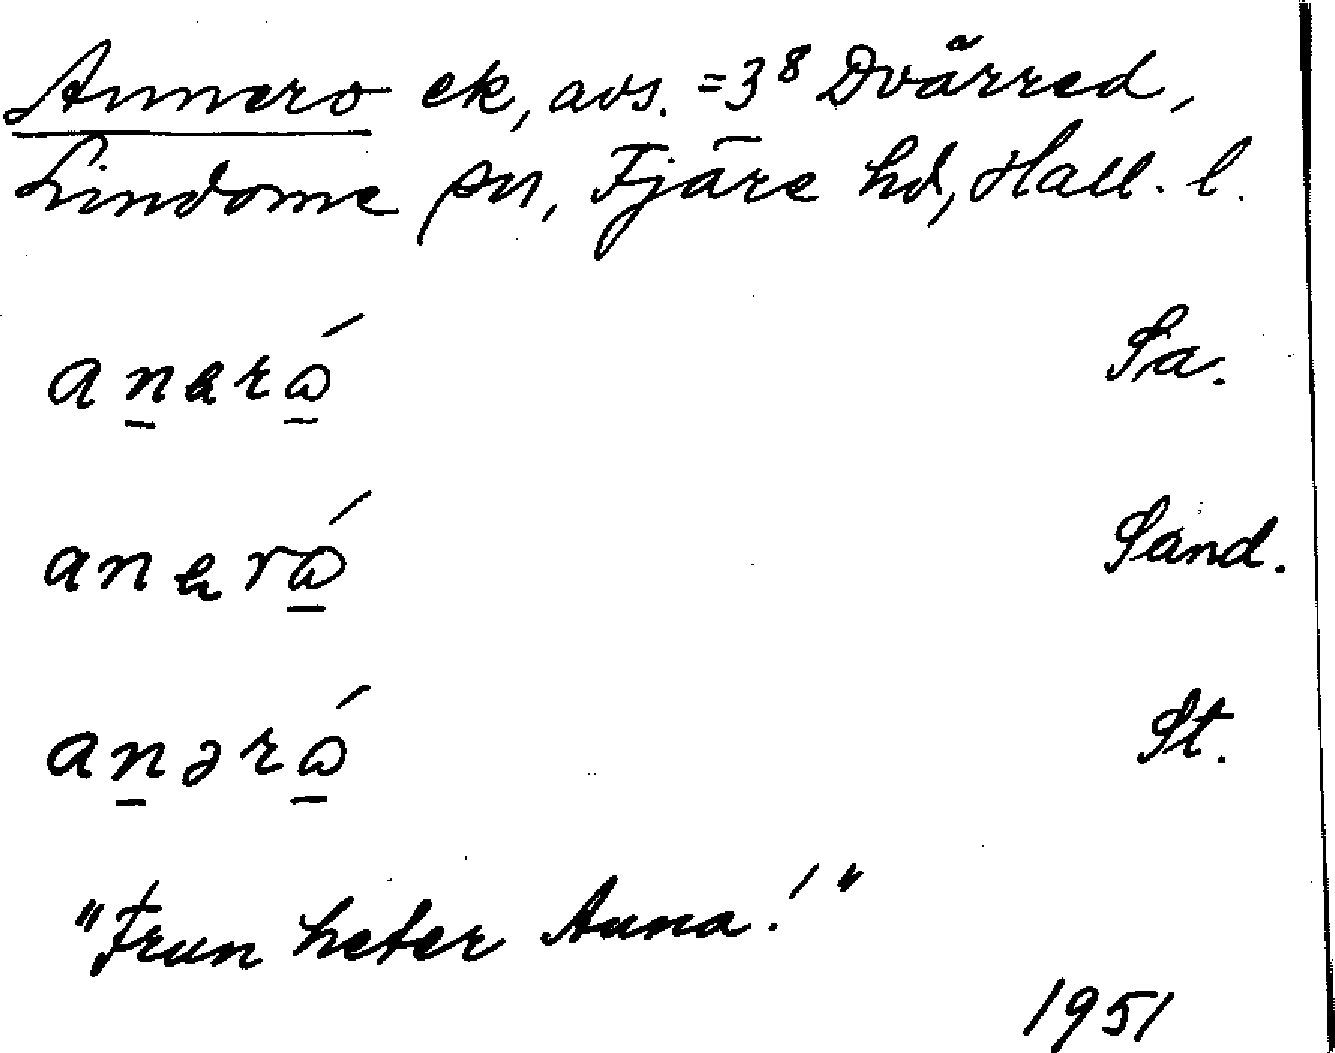 Annero ek, avs. = 3⁸ Dvärred,
Lindome sn, Fjäre hd, Hall. l.
anarǻ Sa.
anarǻ Sand.
anərǻ St.
"Frun heter Anna!"
1951